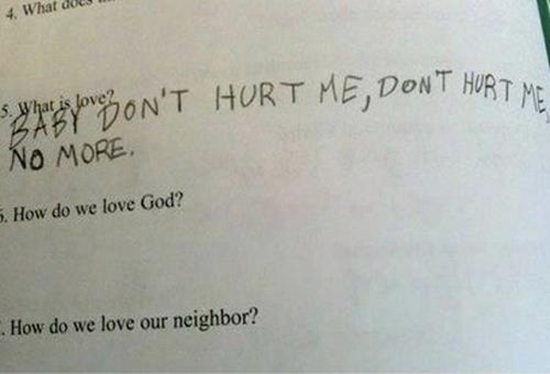 4. What does
5. What is love?
BABY DON'T HURT ME, DON'T HURT ME
NO MORE.
6. How do we love God?
. How do we love our neighbor?